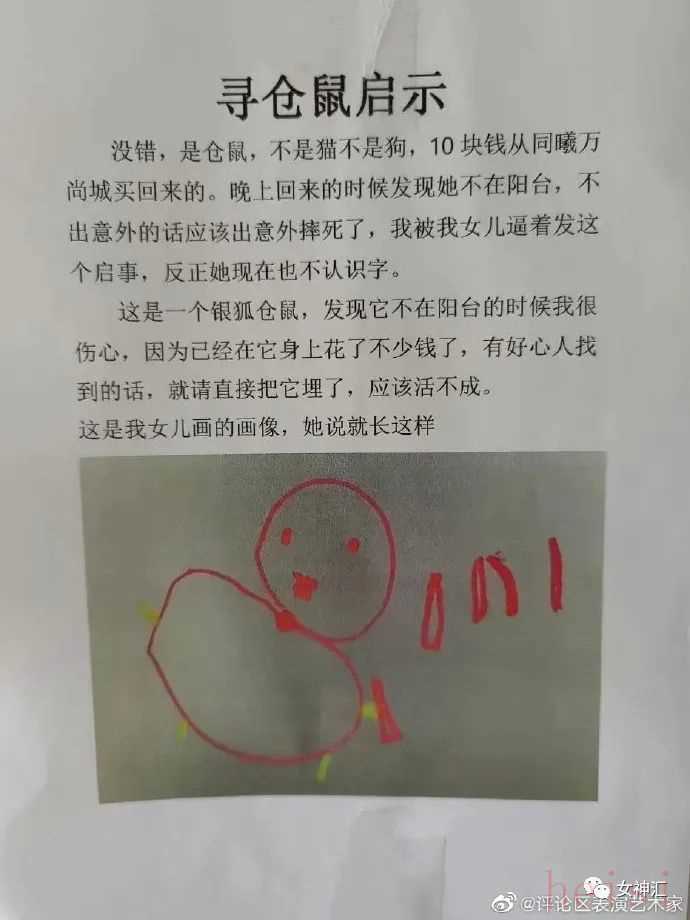 寻仓鼠启示
没错，是仓鼠，不是猫不是狗，10 块钱从同曦万
尚城买回来的。晚上回来的时候发现她不在阳台，不
出意外的话应该出意外摔死了，我被我女儿逼着发这
个启事，反正她现在也不认识字。
这是一个银狐仓鼠，发现它不在阳台的时候我很
伤心，因为已经在它身上花了不少钱了，有好心人找
到的话，就请直接把它埋了，应该活不成。
这是我女儿画的画像，她说就长这样
女神汇
@评论区表演艺术家